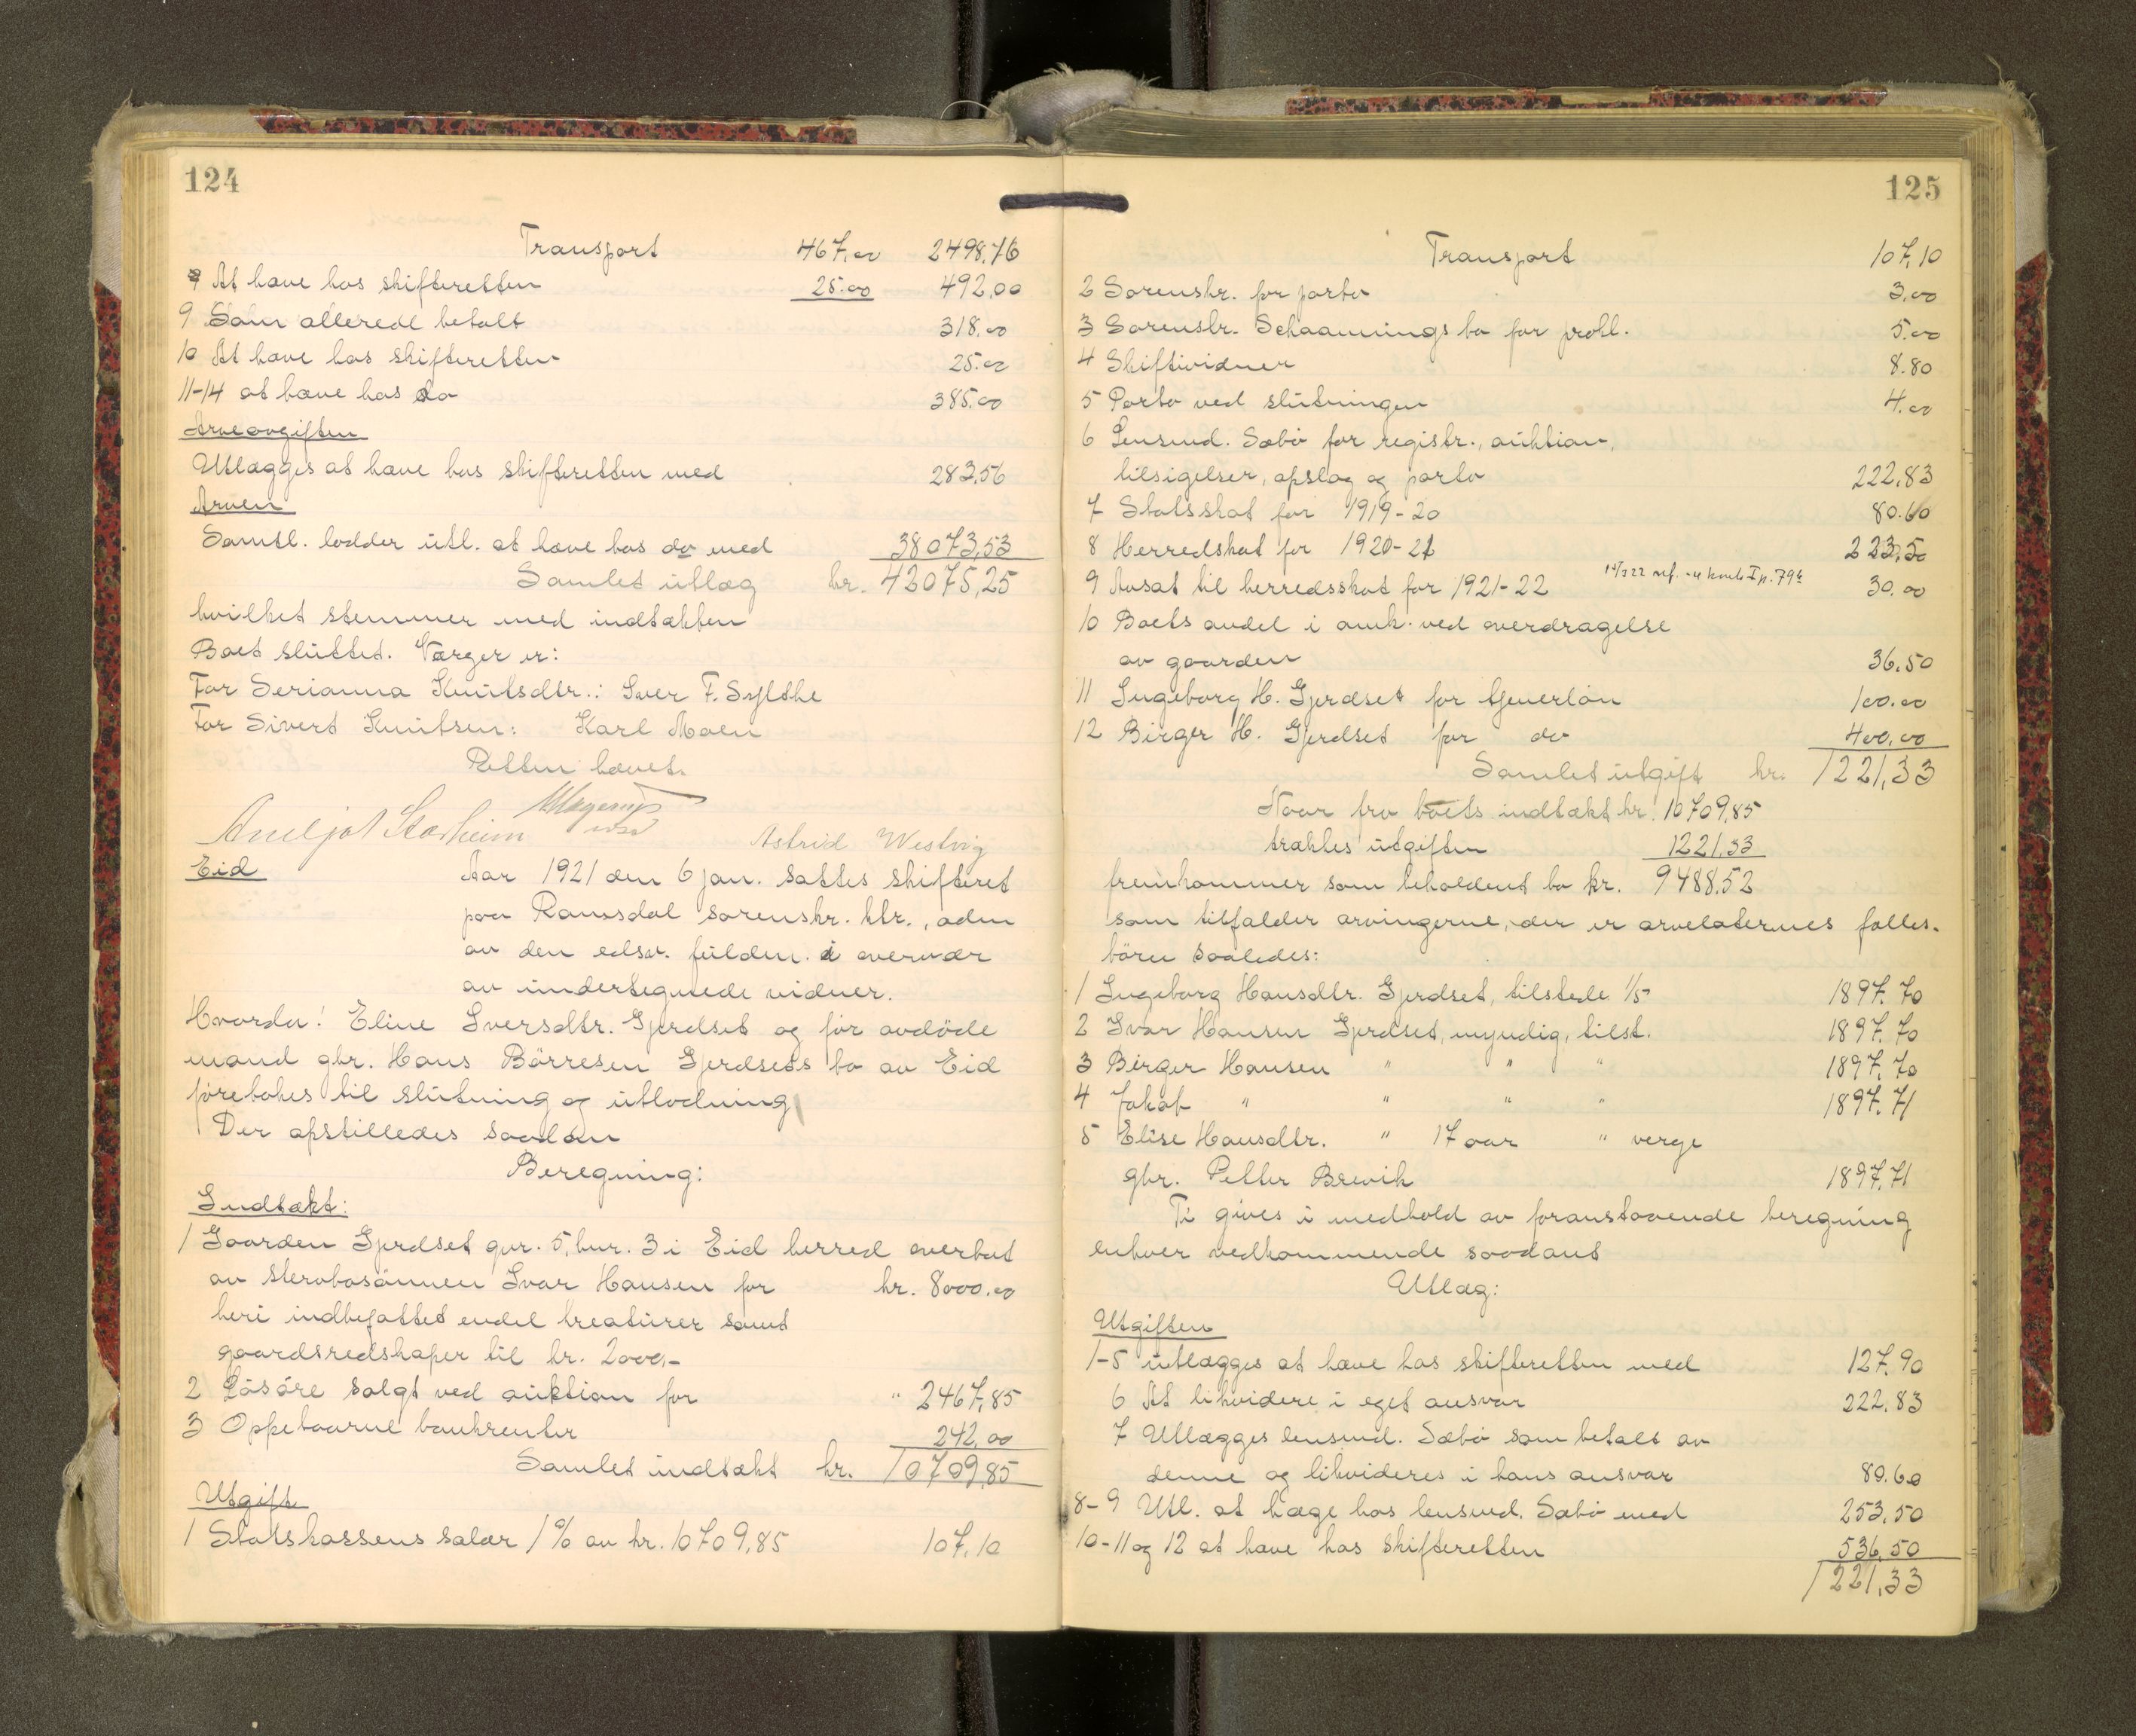 124
Transport 467,00 2498,16
9 At hæve hos skifteretten 25.00 492,00
9 Som allerede betalt 318.00
10 At hæve hos skifteretten 25.00
11-14 at hæve hos do 385.00
Arveavgiften
Utlægges at hæve hos skifteretten med 283,56
Arven
Samtl. lodder utl. at hæve hos do med 38073,53
Samlet utlæg kr. 42075,25
hvilket stemmer med indtækten
Boet sluttet. Værger er:
For Serianna Knutsdtr.: Iver F. Sylthe
For Sivert Knutsen: Karl Moen
Retten hævet.
Storheim
Astrid Westvig
Eid Aar 1921 den 6 jan. sattes skifteret
paa Romsdal sorenskr. ktr., adm
av den edsv. fuldm. i overvær
av undertegnede vidner.
Hvorda: Eline Iversdtr. Gjerdset og før avdöde
mand gbr. Hans Börresen Gjerdsets bo av Eid
foretokes til slutning og utlodning
Der opstilledes saadan
Beregning:
Indtækt:
1 Gaarden Gjerdset gnr. 5, bnr. 3 i Eid herred overtat
av stervbosönnen Ivar Hansen for kr. 8000.00
heri indbefattet endel kreaturer samt
gaardsredskaper til kr. 2000,-
2 Lösöre solgt ved auktion for " 2467,85
3 Oppebaarne bankrenter 242,00
Samlet indtækt kr. 10709,85
Utgift
1 Statskassens salær 1% av kr. 10709,85 107,10
125
Transport 107,10
2 Sorenskr. for porto 3,00
3 Sorenskr. Schaannings bo for prokl. 5.00
4 Skiftevidner 8.80
5 Porto ved slutningen 4.00
6 Lensmd. Sæbö for registr., auktion,
tilsigelser, opslag og porto 222,83
7 Statsskat for 1919-20 80.60
8 Herredskat for 1920-21 223,50
9 Ansat til herredsskat for 1921-22 30.00
10 Boets andel i omk. ved overdragelse
av gaarden 36,50
11 Ingeborg H. Gjerdset for tjenerlön 100.00
12 Birger H. Gjerdset for do 400,00
Samlet utgift kr. 1221,33
Naar fra boets indtækt kr. 10709,85
trækkes utgiften 1221,33
fremkommer som beholdent bo kr. 9488.52
som tilfalder arvingerne, der er arvelaternes fælles-
börn saaledes:
1 Ingeborg Hansdtr. Gjerdset, tilstede 1/5 1897.70
2 Ivar Hansen Gjerdset, myndig, tilst. 1897.70
3 Birger Hansen " " " 1897.70
4 Jakob " " " " 1897.71
5 Elise Hansdtr. " 17 aar " verge
gbr. Petter Brevik 1897,71
Ti gives i medhold av foranstaaende beregning
enhver vedkommende saadant
Utlæg:
Utgiften
1-5 utlægges at hæve hos skifteretten med 127,90
6 At likvidere i eget ansvar 222.83
7 Utlægges lensmd. Sæbö som betalt av
denne og likvideres i hans ansvar 80.60
8-9 Utl. at hæge hos lensmd. Sæbö med 253,50
10-11 og 12 at hæve hos skifteretten 536,50
1221,33